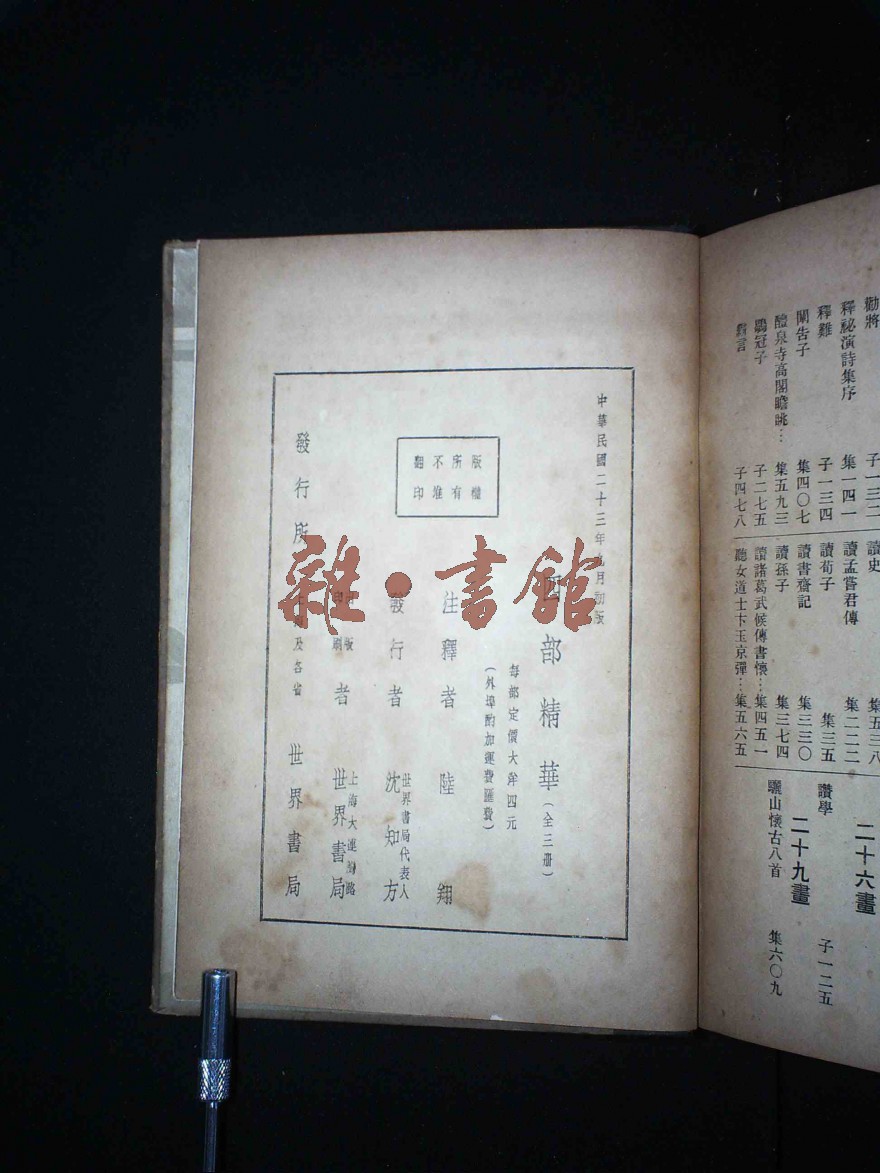 勸將 子一三二
釋祕演詩集序 集一四一
釋難 子一三四
闡告子 集四〇七
醴泉寺高閣瞻眺… 集五九三
鶡冠子 子二七五
言 子四七八
讀史 集五三八
讀孟嘗君傳 集二二二
讀荀子 集三五
讀書齋記 集三三〇
讀孫子 集三七四
讀諸葛武候傳書懷…集四五一
聽女道士卞玉京彈…集五六五
二十六畫
讚學 子一二五
二十九畫
驪山懷古八首 集六〇九
中華民國二十三年九月初版
四部精華(全三册)
每部定價大洋四元
(外埠酌加運費匯費)
版權
所有
不准
翻印
注釋者 陸翔
發行者 世界書局代表人 沈知方
出版
印刷
者 上海大連灣路 世界書局
發行所 上海及各省 世界書局
雜·書館